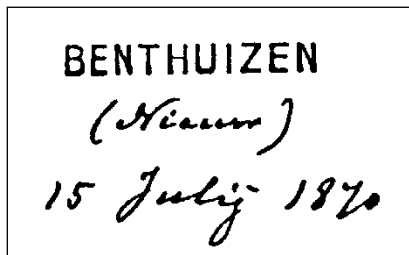 BENTHUIZEN
(Nieuw)
15 Julij 1870